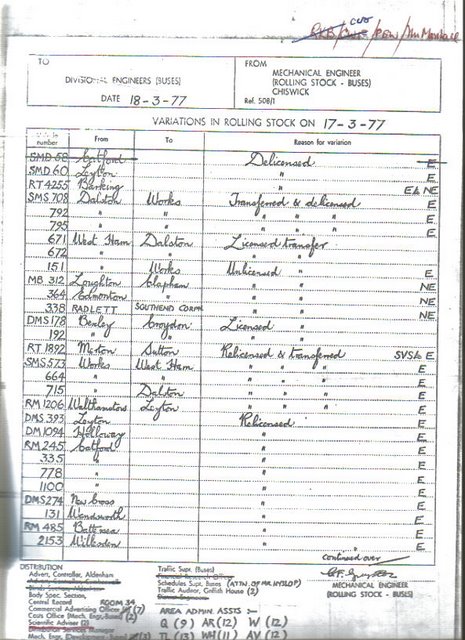 RKB/ CWF/ROW/Mr Marshall
TO
DIVISIONAL ENGINEERS (BUSES)
DATE 18-3-77
FROM
MECHANICAL ENGINEER
(ROLLING STOCK - BUSES)
CHISWICK
Ref. 508/1
VARIATIONS IN ROLLING STOCK ON 17-3-77
number From To Reason for variation
SMD 68 Catford Delicensed E
SMD 60 Leyton " E
RT 4255 Barking " E & NE
SMS 708 Dalston Works Transferred & delicensed E
792 " " " " E
795 " " " " E
671 West Ham Dalston Licensed transfer
672 " " " "
151 " Works Unlicensed " E
MB 312 Loughton Clapham " " NE
364 Edmonton " " " NE
338 RADLETT SOUTHEND CORPN " " NE
DMS 178 Bexley Croydon Licensed "
192 " " " "
RT 1892 Merton Sutton Relicensed & transferred SVS to E
SMS 573 Works West Ham " " " E
664 " " " " " E
715 " Dalston " " " E
RM 1206 Walthamstow Leyton " " " E
DMS 393 Leyton Relicensed E
DM 1094 Holloway " E
RM 245 Catford " E
335 " " E
778 " " E
1100 " " E
DMS 274 New Cross " E
131 Wandsworth " E
RM 485 Battersea " E
2153 Willesden " E
continued over
DISTRIBUTION
Advert. Controller, Aldenham
Body Spec. Section,
Central Record ROOM 34
Commercial Advertising Officer (7)
Costs Office (Mech. Engr. Buses) (2)
Scientific Adviser (2)
Distribution Services Manager
Mech. Engr. (Development - Road) (3)
Traffic Supt. (Buses)
Schedules Supt. Buses (ATTN. OF MR HYSLOP)
Traffic Auditor, Griffith House (2)
AREA ADMIN. ASSTS :-
Q (9) AR (12) W (12)
TL (13) WH (11) AV (12)
MECHANICAL ENGINEER
(ROLLING STOCK - BUSES)